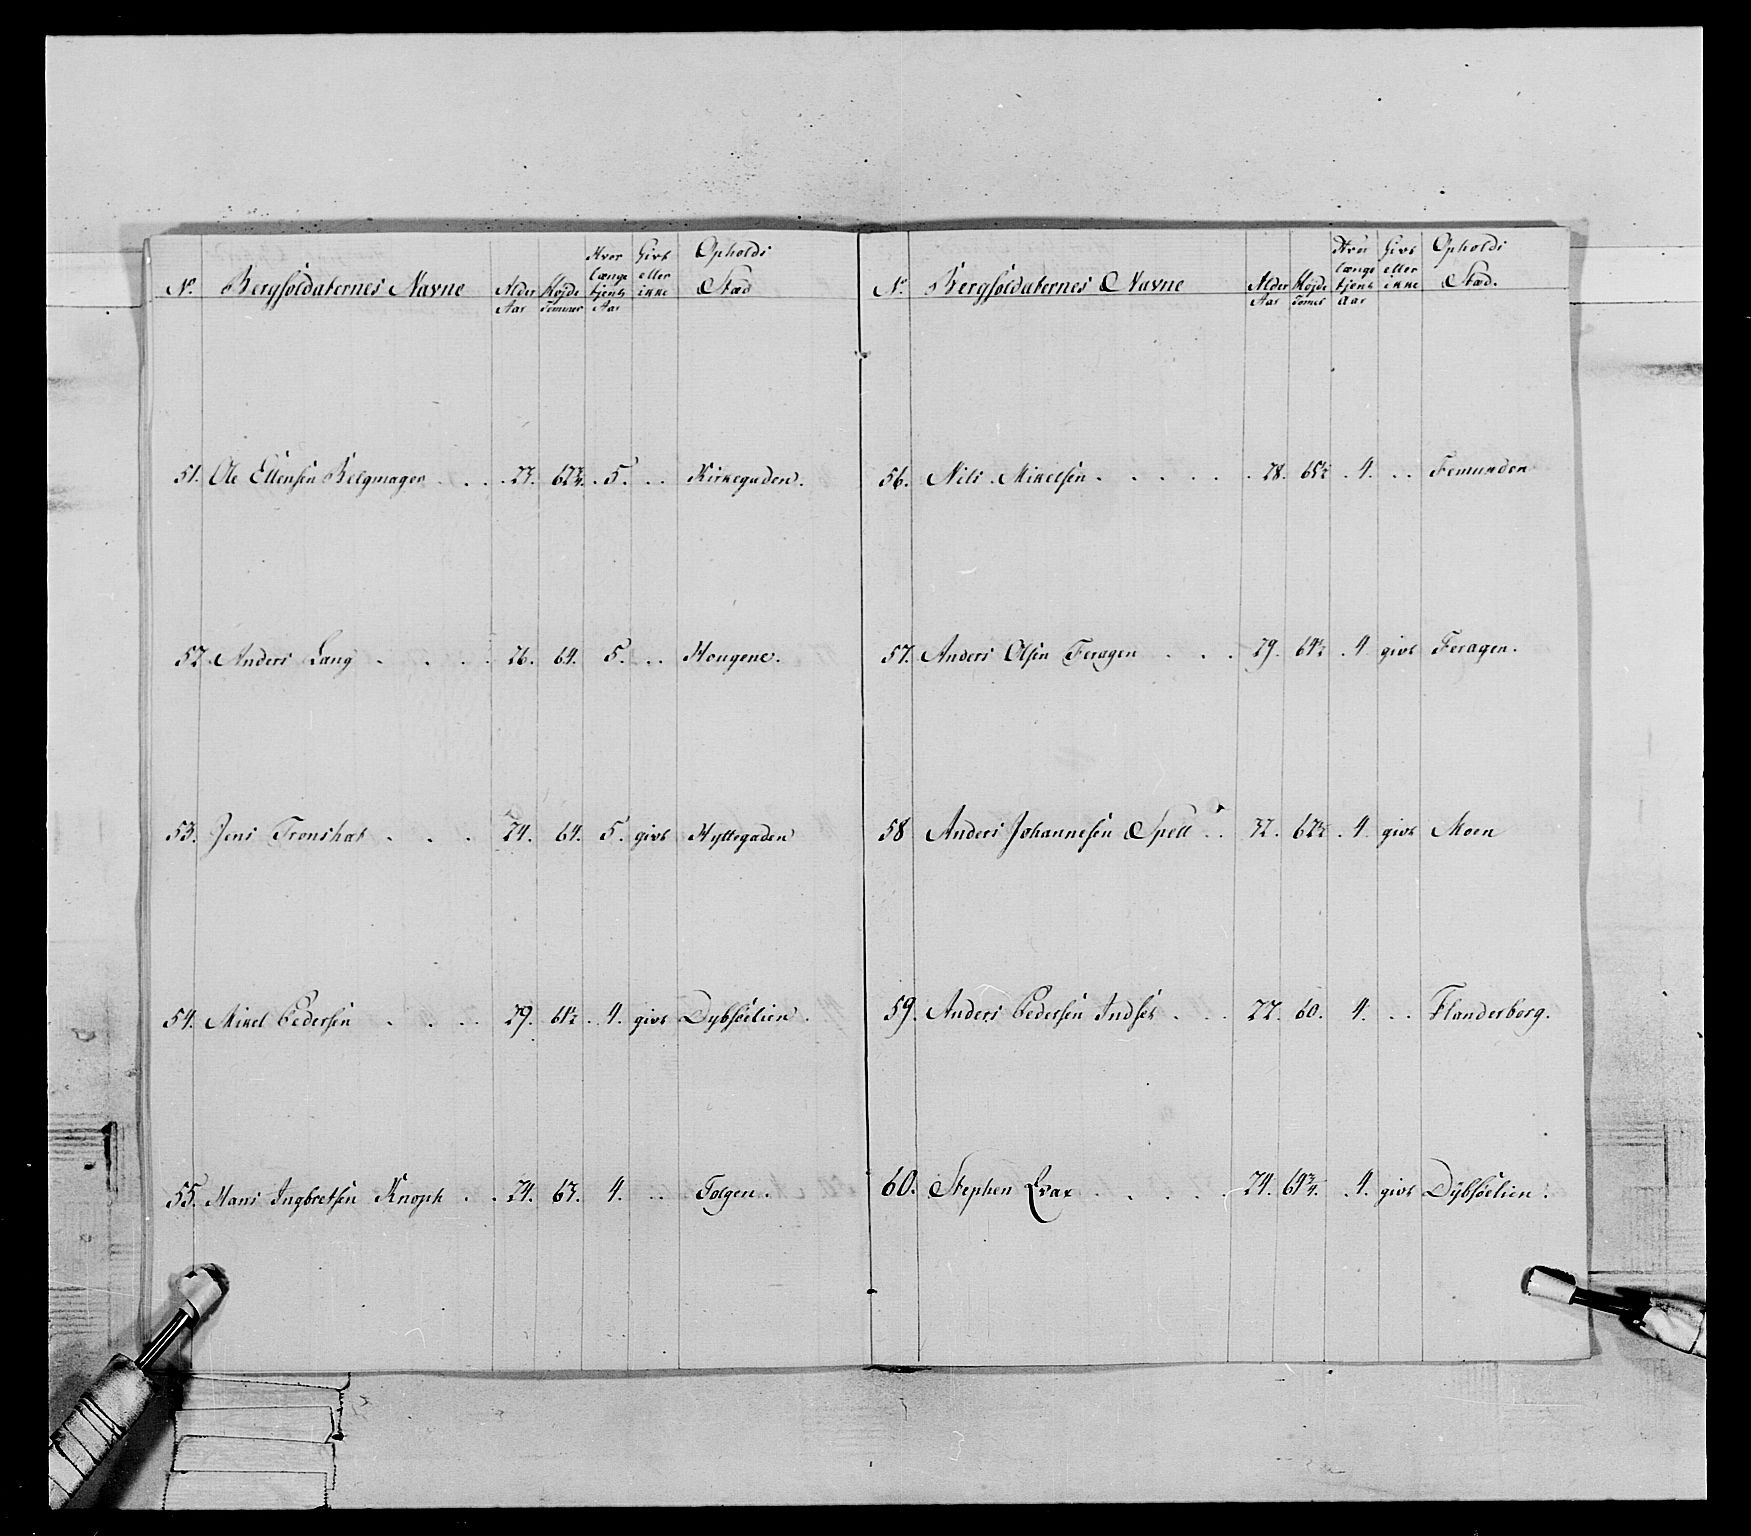 No. Bergsoldaternes Navne Alder Aar Højde Tommer Hvor længe tjent Aar Givt eller ikke Opholds Stæd
51. Ole Ellensen Belgmager . . . 23. 62¾. 5. . . Kirkegaden.
52. Anders Lang . . . . 26. 64. 5. . . Hougene.
53. Jens Tronshat . . . 24. 64. 5. givt Hyttegaden
54. Mikel Pedersen . . . 29. 61½. 4. givt Dybsöelien.
55. Hans Ingbretsen Knoph . . 24. 63. 4. . . Tolgen.
No. Bergsoldaternes Navne Alder Aar Højde Tomer Hvor længe tjent Aar Givt eller ikke Opholds Stæd.
56. Nils Mikelsen . . . . . 28. 65½. 4. . . Femunden
57. Anders Olsen Feragen . . . 29. 64½. 4 givt Feragen.
58 Anders Johannesen Spell . . 32. 62½. 4. givt Moen
59. Anders Pedersen Indset . . . 22. 60. 4. . . Flanderborg.
60. Stephen Qvar . . . . . 24. 64¾. 4. givt Dybsöelien.